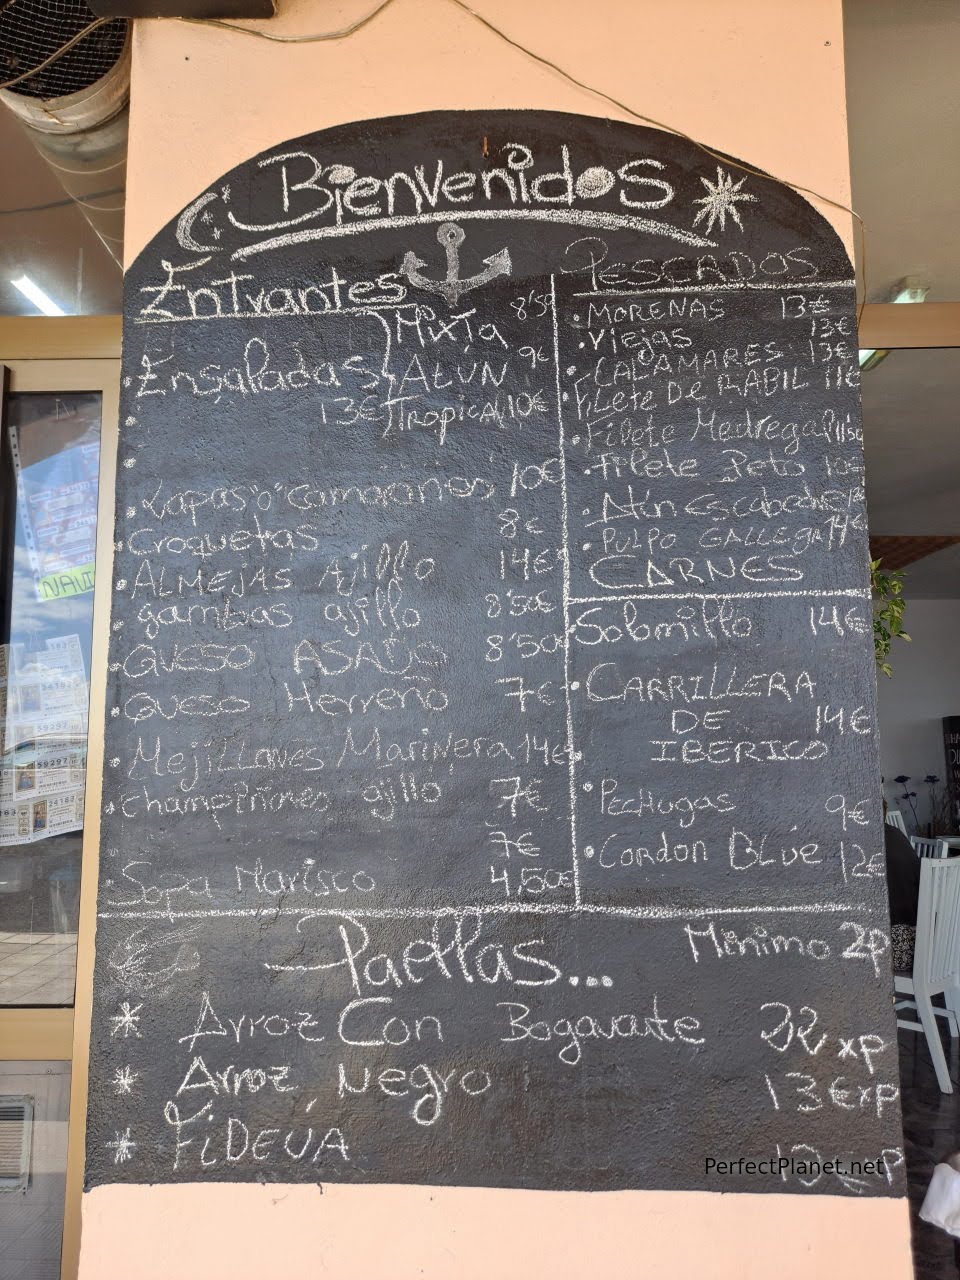 Bienvenidos
Entrantes
Mixta 8'50
Ensaladas Atún 9€
13€ Tropical 10€
Lapas "o" camarones 10€
Croquetas 8€
ALMEJAS Ajillo 14€
gambas ajillo 8'50€
QUESO ASADO 8'50€
QUESO Herreño 7€
Mejillones Marinera 14€
champiñones ajillo 7€
7€
Sopa Marisco 4,50€
PESCADOS
MORENAS 13€
Viejas 13€
CALAMARES 13€
Filete DE RABIL 11€
Filete Medregal 11'50
Filete Peto 10€
Atún Escabeche
PULPO GALLEGA 14€
CARNES
Solomillo 14€
CARRILLERA
DE 14€
IBERICO
PECHUGAS 9€
Cordon BLUE 12€
Paellas... Minimo 2p
Arroz Con Bogavante 22 xp
Arroz Negro 13€xp
FiDEUA
PerfectPlanet.net